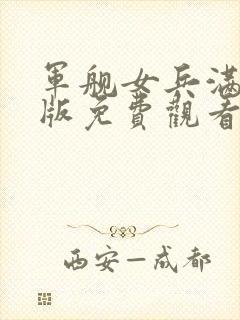 軍舰女兵满
版免費觀看
西安—成都